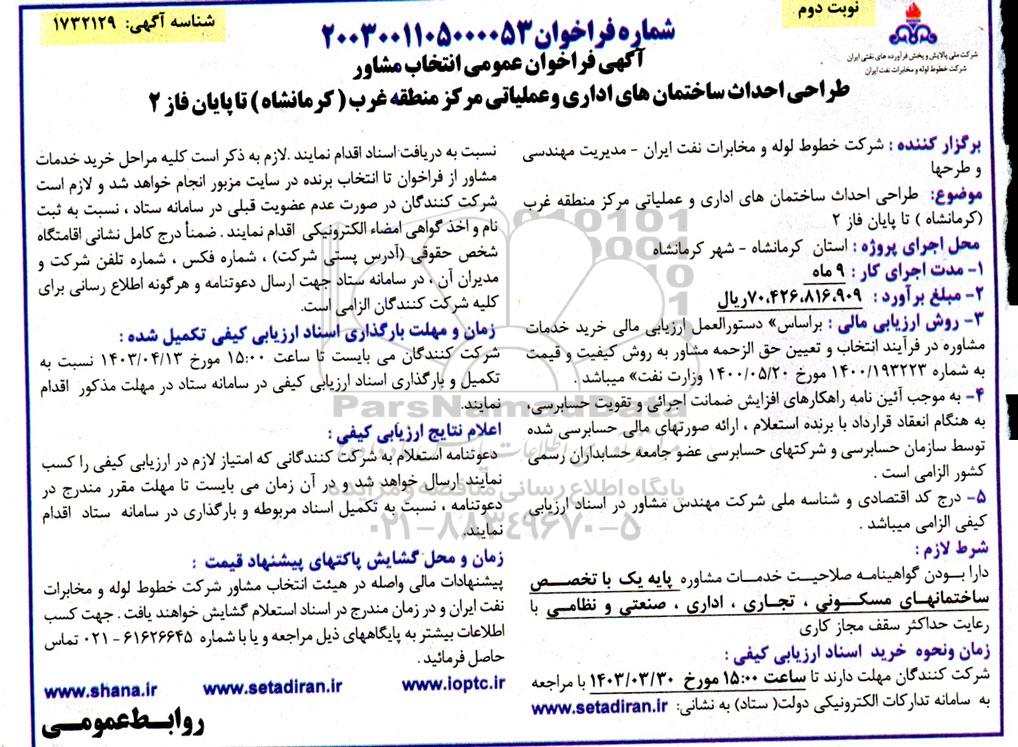 نوبت دوم
شناسه آگهی: ۱۷۳۲۱۲۹
شرکت ملی پالایش و پخش فرآورده های نفتی ایران
شرکت خطوط لوله و مخابرات نفت ایران
شماره فراخوان ۲۰۰۳۰۰۱۱۰۵۰۰۰۰۵۳
آگهی فراخوان عمومی انتخاب مشاور
طراحی احداث ساختمان های اداری و عملیاتی مرکز منطقه غرب ( کرمانشاه ) تا پایان فاز ۲
برگزار کننده : شرکت خطوط لوله و مخابرات نفت ایران - مدیریت مهندسی
و طرحها
موضوع: طراحی احداث ساختمان های اداری و عملیاتی مرکز منطقه غرب
(کرمانشاه ) تا پایان فاز ۲
محل اجرای پروژه : استان کرمانشاه - شهر کرمانشاه
۱- مدت اجرای کار : ۹ ماه
۲- مبلغ برآورد : ۷۰،۴۲۶،۸۱۶،۹۰۹ریال
۳- روش ارزیابی مالی : براساس» دستورالعمل ارزیابی مالی خرید خدمات
مشاوره در فرآیند انتخاب و تعیین حق الزحمه مشاور به روش کیفیت و قیمت
به شماره ۱۴۰۰/۱۹۳۲۲۳ مورخ ۱۴۰۰/۰۵/۲۰ وزارت نفت» میباشد .
۴- به موجب آئین نامه راهکارهای افزایش ضمانت اجرائی و تقویت حسابرسی،
به هنگام انعقاد قرارداد با برنده استعلام ، ارائه صورتهای مالی حسابرسی شده
توسط سازمان حسابرسی و شرکتهای حسابرسی عضو جامعه حسابداران رسمی
کشور الزامی است .
۵- درج کد اقتصادی و شناسه ملی شرکت مهندس مشاور در اسناد ارزیابی
کیفی الزامی میباشد .
شرط لازم :
دارا بودن گواهینامه صلاحیت خدمات مشاوره پایه یک با تخصص
ساختمانهای مسکونی ، تجاری ، اداری ، صنعتی و نظامی با
رعایت حداکثر سقف مجاز کاری
زمان ونحوه خرید اسناد ارزیابی کیفی :
شرکت کنندگان مهلت دارند تا ساعت ۱۵:۰۰ مورخ ۱۴۰۳/۰۳/۳۰ با مراجعه
به سامانه تدارکات الکترونیکی دولت( ستاد) به نشانی: www.setadiran.ir
نسبت به دریافت اسناد اقدام نمایند .لازم به ذکر است کلیه مراحل خرید خدمات
مشاور از فراخوان تا انتخاب برنده در سایت مزبور انجام خواهد شد و لازم است
شرکت کنندگان در صورت عدم عضویت قبلی در سامانه ستاد ، نسبت به ثبت
نام و اخذ گواهی امضاء الکترونیکی اقدام نمایند . ضمناً درج کامل نشانی اقامتگاه
شخص حقوقی (آدرس پستی شرکت) ، شماره فکس ، شماره تلفن شرکت و
مدیران آن ، در سامانه ستاد جهت ارسال دعوتنامه و هرگونه اطلاع رسانی برای
کلیه شرکت کنندگان الزامی است.
زمان و مهلت بارگذاری اسناد ارزیابی کیفی تکمیل شده :
شرکت کنندگان می بایست تا ساعت ۱۵:۰۰ مورخ ۱۴۰۳/۰۴/۱۳ نسبت به
تکمیل و بارگذاری اسناد ارزیابی کیفی در سامانه ستاد در مهلت مذکور اقدام
نمایند.
اعلام نتایج ارزیابی کیفی :
دعوتنامه استعلام به شرکت کنندگانی که امتیاز لازم در ارزیابی کیفی را کسب
نمایند ارسال خواهد شد و در آن زمان می بایست تا مهلت مقرر مندرج در
دعوتنامه ، نسبت به تکمیل اسناد مربوطه و بارگذاری در سامانه ستاد اقدام
نمایند.
زمان و محل گشایش پاکتهای پیشنهاد قیمت :
پیشنهادات مالی واصله در هیئت انتخاب مشاور شرکت خطوط لوله و مخابرات
نفت ایران و در زمان مندرج در اسناد استعلام گشایش خواهند یافت . جهت کسب
اطلاعات بیشتر به پایگاههای ذیل مراجعه و یا با شماره ۶۱۶۲۶۶۴۵ - ۰۲۱ تماس
حاصل فرمائید .
www.shana.ir www.setadiran.ir www.ioptc.ir
روابط عمومی
ParsNamadData
پایگاه اطلاع رسانی مناقصه و مزایده
۰۲۱-۸۸۳۴۹۶۷۰-۵